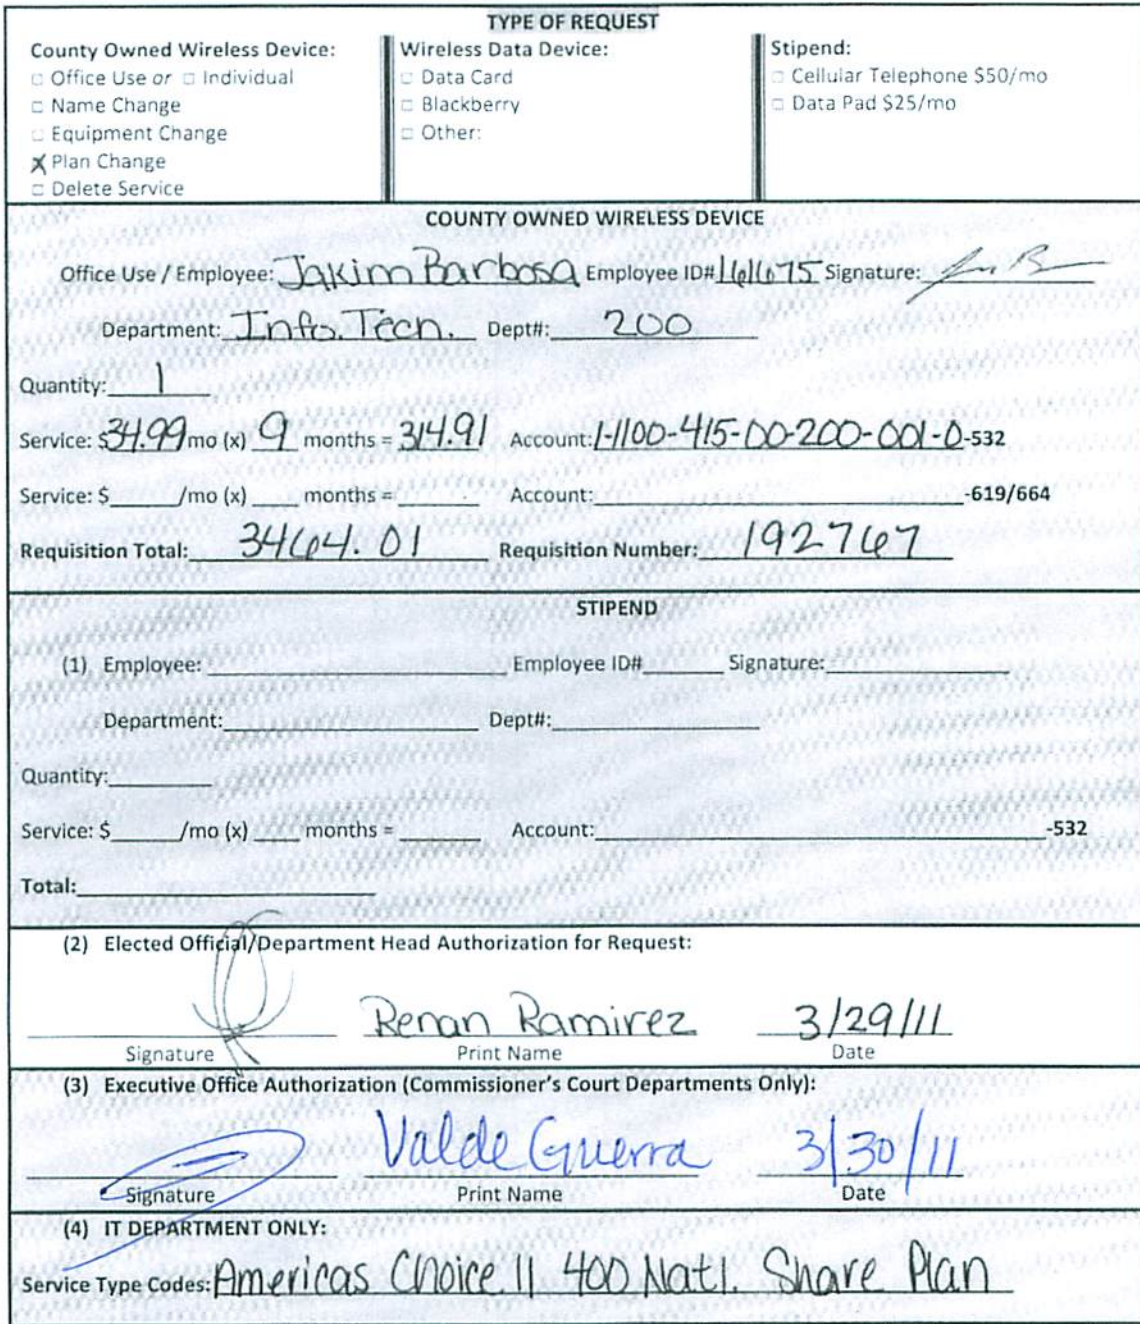 TYPE OF REQUEST
County Owned Wireless Device:
□ Office Use or □ Individual
□ Name Change
□ Equipment Change
X Plan Change
□ Delete Service
Wireless Data Device:
□ Data Card
□ Blackberry
□ Other:
Stipend:
□ Cellular Telephone $50/mo
□ Data Pad $25/mo
COUNTY OWNED WIRELESS DEVICE
Office Use / Employee: Jakim Barbosa Employee ID# 161675 Signature:
Department: Info. Tech. Dept#: 200
Quantity: 1
Service: $34.99 mo (x) 9 months = 314.91 Account: 1-1100-415-00-200-001-0-532
Service: $ /mo (x) months = Account: -619/664
Requisition Total: 3464.01 Requisition Number: 192767
STIPEND
(1) Employee: Employee ID# Signature:
Department: Dept#:
Quantity:
Service: $ /mo (x) months = Account: -532
Total:
(2) Elected Official/Department Head Authorization for Request:
Renan Ramirez 3/29/11
Signature Print Name Date
(3) Executive Office Authorization (Commissioner's Court Departments Only):
Valde Guerra 3/30/11
Signature Print Name Date
(4) IT DEPARTMENT ONLY:
Service Type Codes: Americas Choice II 400 Natl. Share Plan